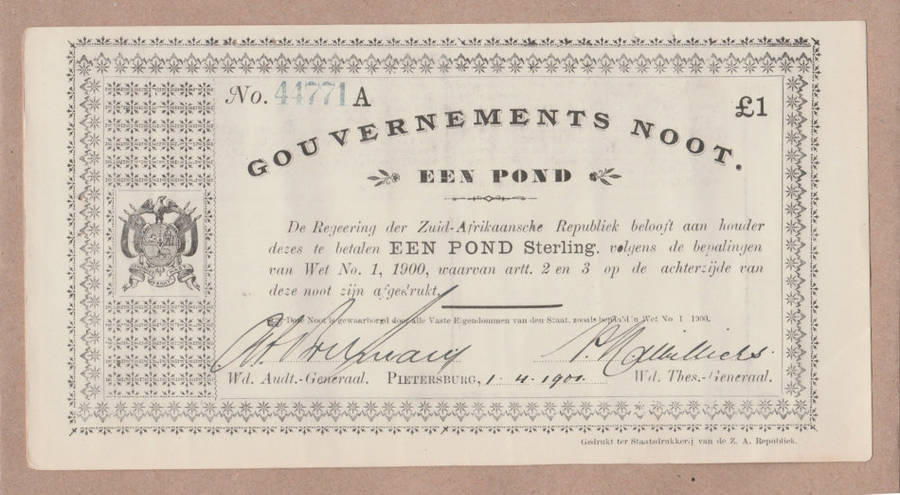 No. 44771 A
£1
GOUVERNEMENTS NOOT.
EEN POND
De Regeering der Zuid-Afrikaansche Republiek belooft aan houder
dezes te betalen EEN POND Sterling. volgens de bepalingen
van Wet No. 1, 1900, waarvan artt. 2 en 3 op de achterzijde van
deze noot zijn afgedrukt.
Deze Noot is gewaarborgd door alle Vaste Eigendommen van den Staat, zooals bepaald in Wet No 1 1900.
Wd. Audt.-Generaal. PIETERSBURG, 1.4.1901. Wd. Thes.-Generaal.
Gedrukt ter Staatsdrukkerij van de Z. A. Republiek.